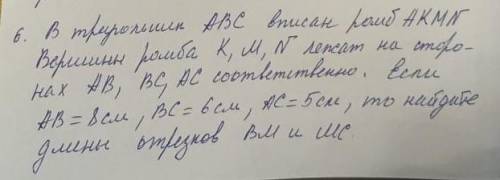 6. В треугольник ABC вписан ромб AKMN
Вершины ромба K, M, N лежат на сторо-
нах AB, BC, AC соответственно. Если
AB = 8см, BC = 6см, AC = 5см, то найдите
длины отрезков BM и MC.